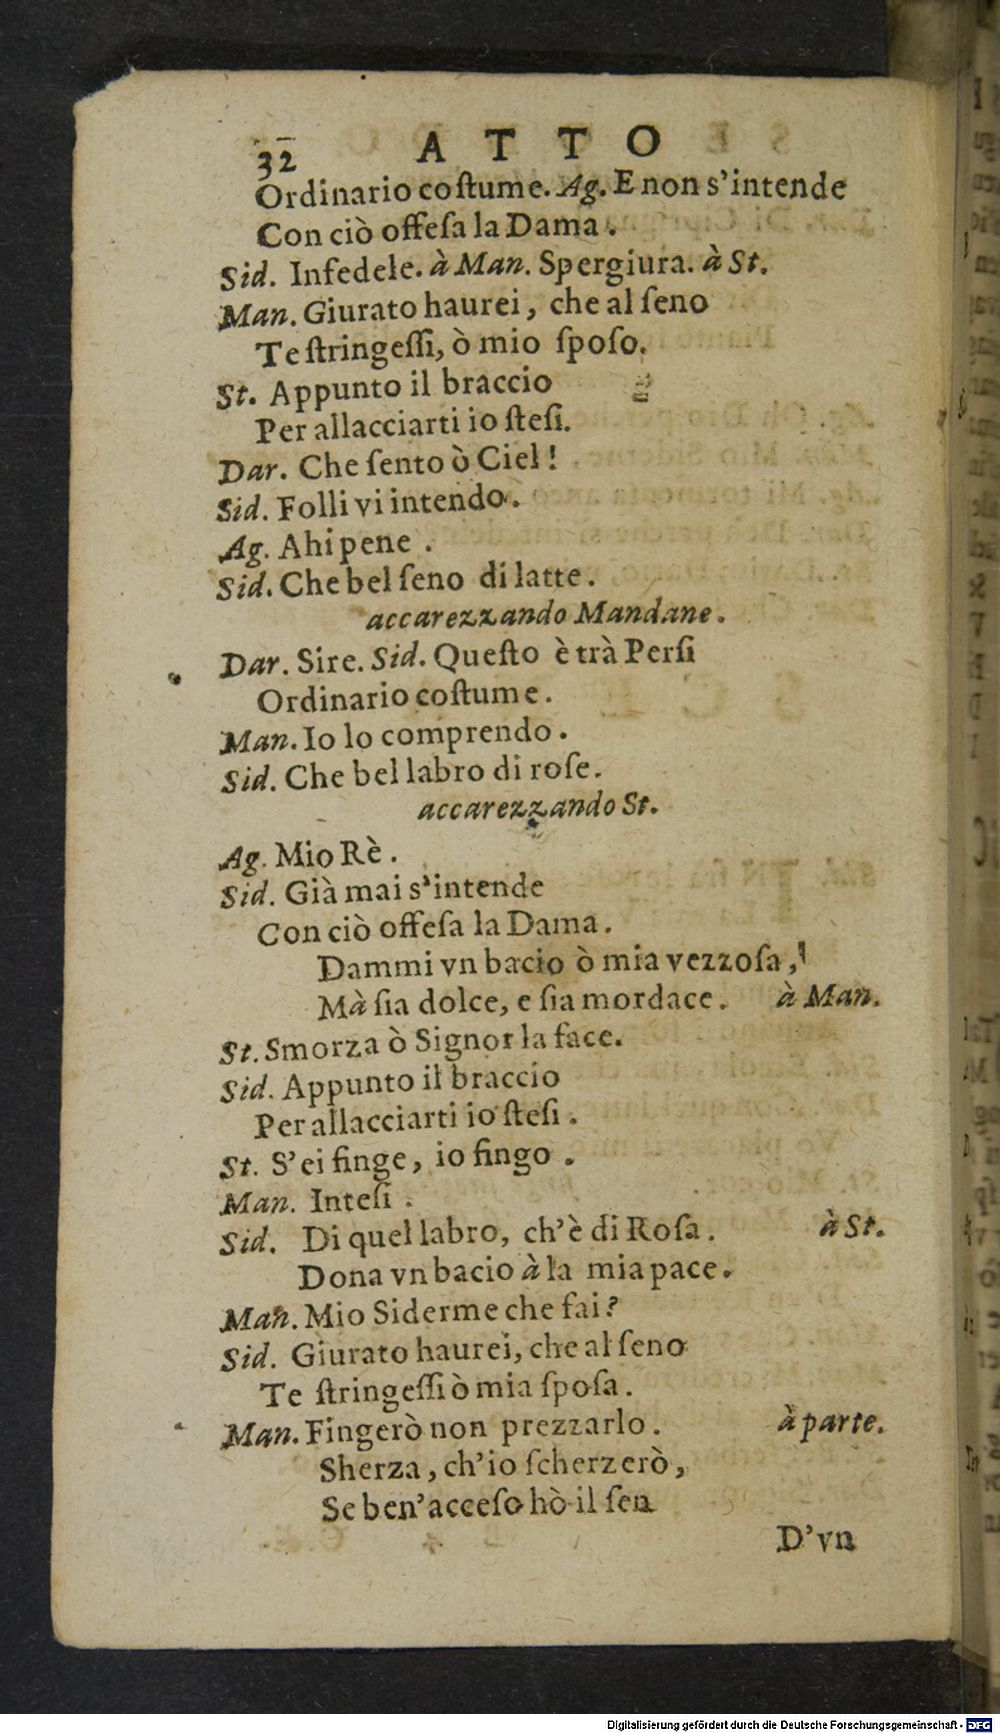 32 ATTO
Ordinario coſtume. Ag. E non s'intende
Con ciò offeſa la Dama.
Sid. Infedele. à Man. Spergiura. à St.
Man. Giurato haurei, che al ſeno
Te ſtringeſſi, ò mio ſpoſo.
St. Appunto il braccio
Per allacciarti io ſteſi.
Dar. Che ſento ò Ciel!
Sid. Folli vi intendo.
Ag. Ahi pene.
Sid. Che bel ſeno di latte.
accarezzando Mandane.
Dar. Sire. Sid. Queſto è trà Perſi
Ordinario coſtume.
Man. Io lo comprendo.
Sid. Che bel labro di roſe.
accarezzando St.
Ag. Mio Rè.
Sid. Già mai s'intende
Con ciò offeſa la Dama.
Dammi vn bacio ò mia vezzoſa,
Mà ſia dolce, e ſia mordace. à Man.
St. Smorza ò Signor la face.
Sid. Appunto il braccio
Per allacciarti io ſteſi.
St. S'ei finge, io fingo.
Man. Inteſi.
Sid. Di quel labro, ch'è di Roſa. à St.
Dona vn bacio à la mia pace.
Man. Mio Siderme che fai?
Sid. Giurato haurei, che al ſeno
Te ſtringeſſi ò mia ſpoſa.
Man. Fingerò non prezzarlo. à parte.
Sherza, ch'io ſcherzerò,
Se ben'acceſo hò il ſen
D'vn
Digitalisierung gefördert durch die Deutsche Forschungsgemeinschaft - DFG